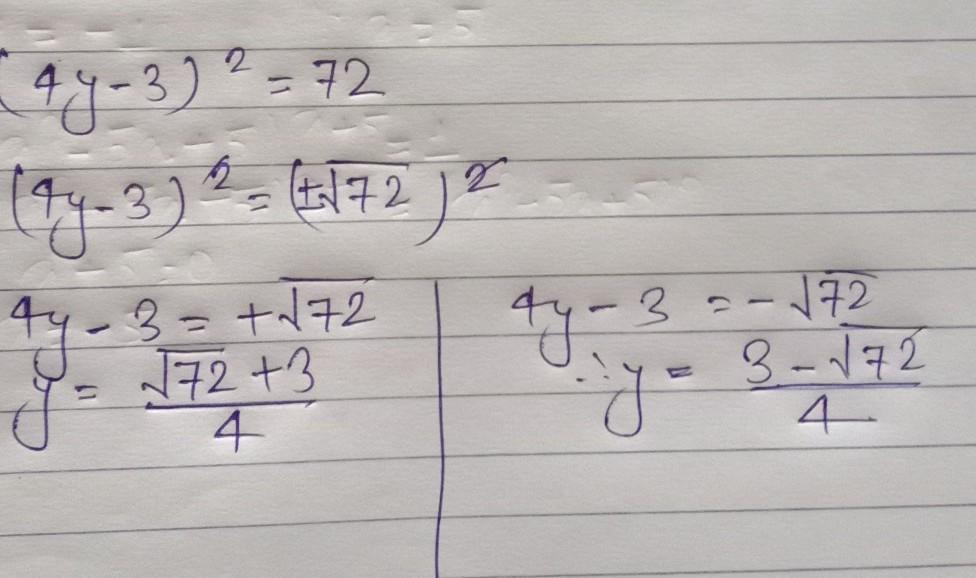 (4y-3)² = 72
(4y-3)² = (±√72)²
4y - 3 = +√72
y = (√72 + 3)/4
4y - 3 = -√72
∴ y = (3 - √72)/4